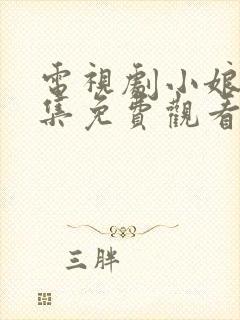 電視劇小娘
集免費觀看
三胖